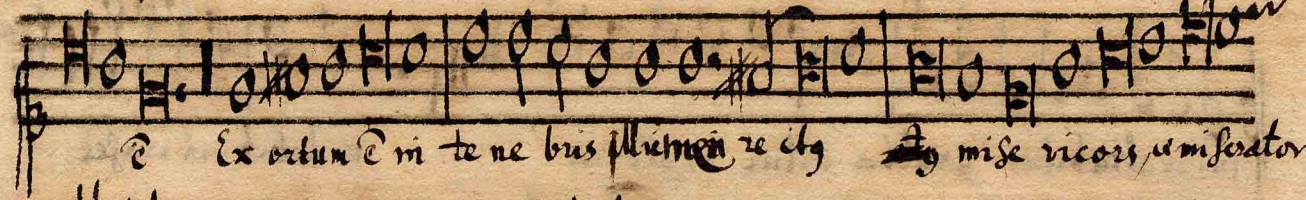 ē Ex ortum ē in te ne bris lumen re ctꝯ mise ricors, et miserator